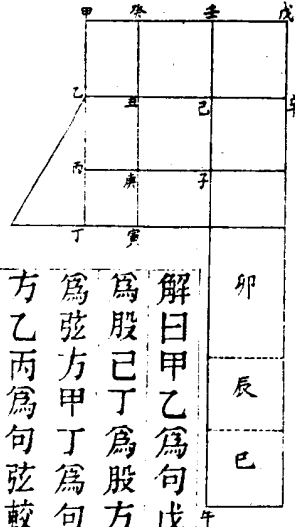 甲 癸 壬 戊
乙 丑 己 辛
丙 庚 子
丁 寅
卯
辰
巳
午
解曰甲乙爲句戊
爲股己丁爲股方
爲弦方甲丁爲句
方乙丙爲句弦較